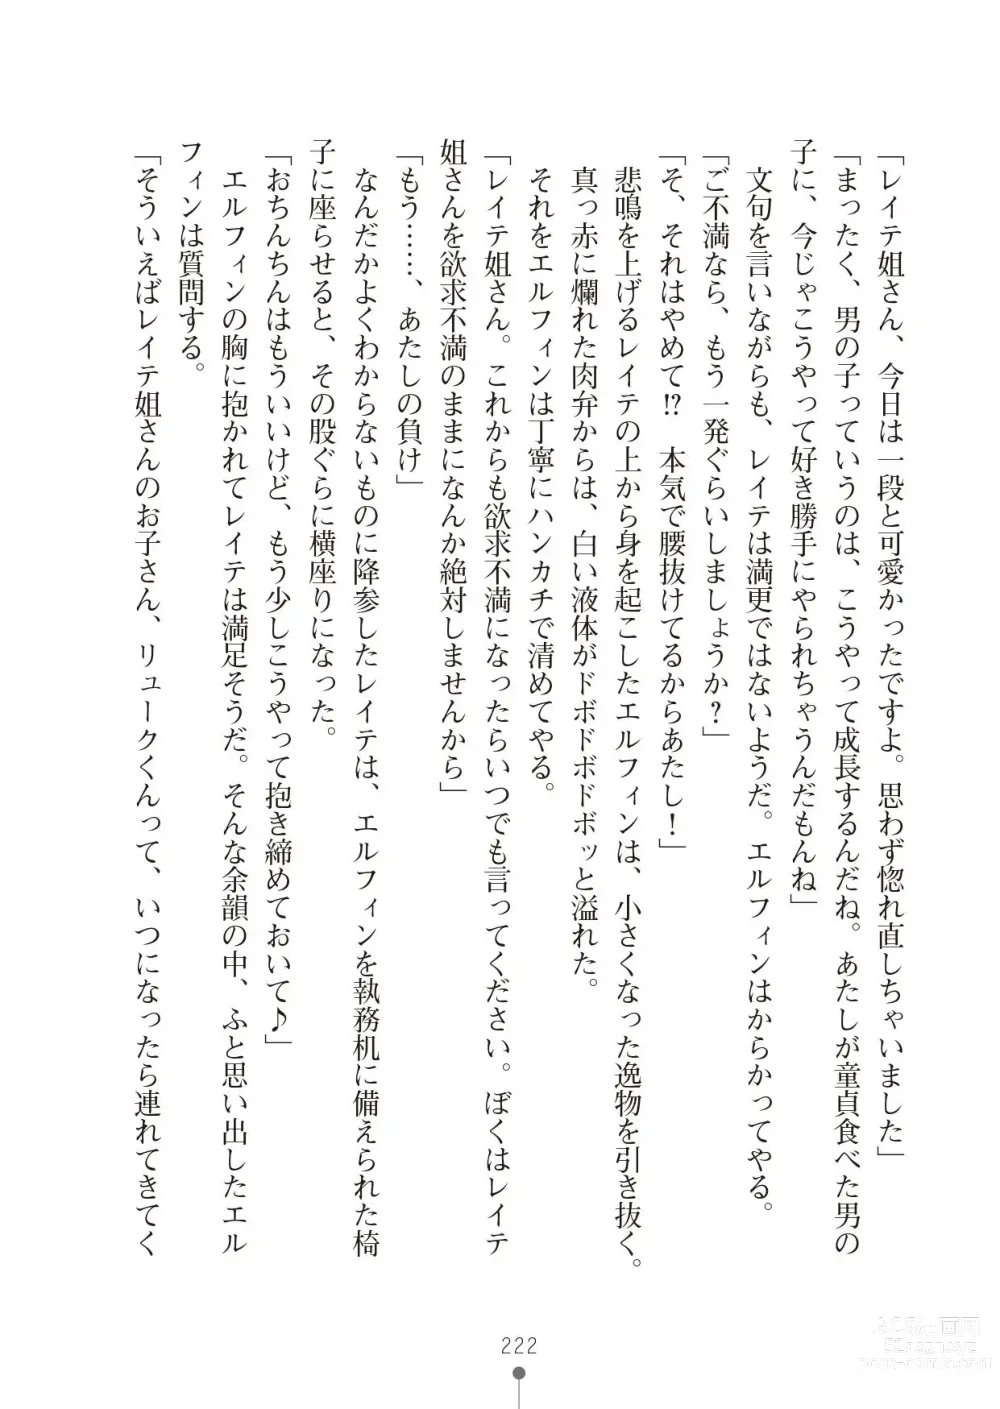 「レイテ姐さん、今日は一段と可愛かったですよ。思わず惚れ直しちゃいました」
「まったく、男の子っていうのは、こうやって成長するんだね。あたしが童貞食べた男の
子に、今じゃこうやって好き勝手にやられちゃうんだもんね」
文句を言いながらも、レイテは満更ではないようだ。エルフィンはからかってやる。
「ご不満なら、もう一発ぐらいしましょうか?」
「そ、それはやめて!? 本気で腰抜けてるからあたし!」
悲鳴を上げるレイテの上から身を起こしたエルフィンは、小さくなった逸物を引き抜く。
真っ赤に爛れた肉弁からは、白い液体がドボドボドボッと溢れた。
それをエルフィンは丁寧にハンカチで清めてやる。
「レイテ姐さん。これからも欲求不満になったらいつでも言ってください。ぼくはレイテ
姐さんを欲求不満のままになんか絶対しませんから」
「もう……、あたしの負け」
なんだかよくわからないものに降参したレイテは、エルフィンを執務机に備えられた椅
子に座らせると、その股ぐらに横座りになった。
「おちんちんはもういいけど、もう少しこうやって抱き締めておいて♪」
エルフィンの胸に抱かれてレイテは満足そうだ。そんな余韻の中、ふと思い出したエル
フィンは質問する。
「そういえばレイテ姐さんのお子さん、リュークくんって、いつになったら連れてきてく
222